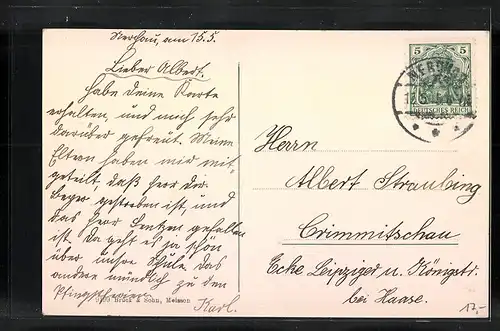 Nerchau, am 15.5.
Lieber Albert.
Habe deine Karte
erhalten, und mich sehr
darüber gefreut. Meine
Eltern haben mir mit-
geteilt, daß Herr
gestorben ist, und
das Herr Lentzen gefallen
ist. Da geht es ja schön
über unsre Schule. das
andere mündlich zu den
Pfingstferien.
Karl.
Bruck & Sohn, Meissen
5 5
DEUTSCHES REICH
NERCHAU
Herrn
Albert Straubing
Crimmitschau
Ecke Leipziger u. Königstr.
bei Haase.
17,-